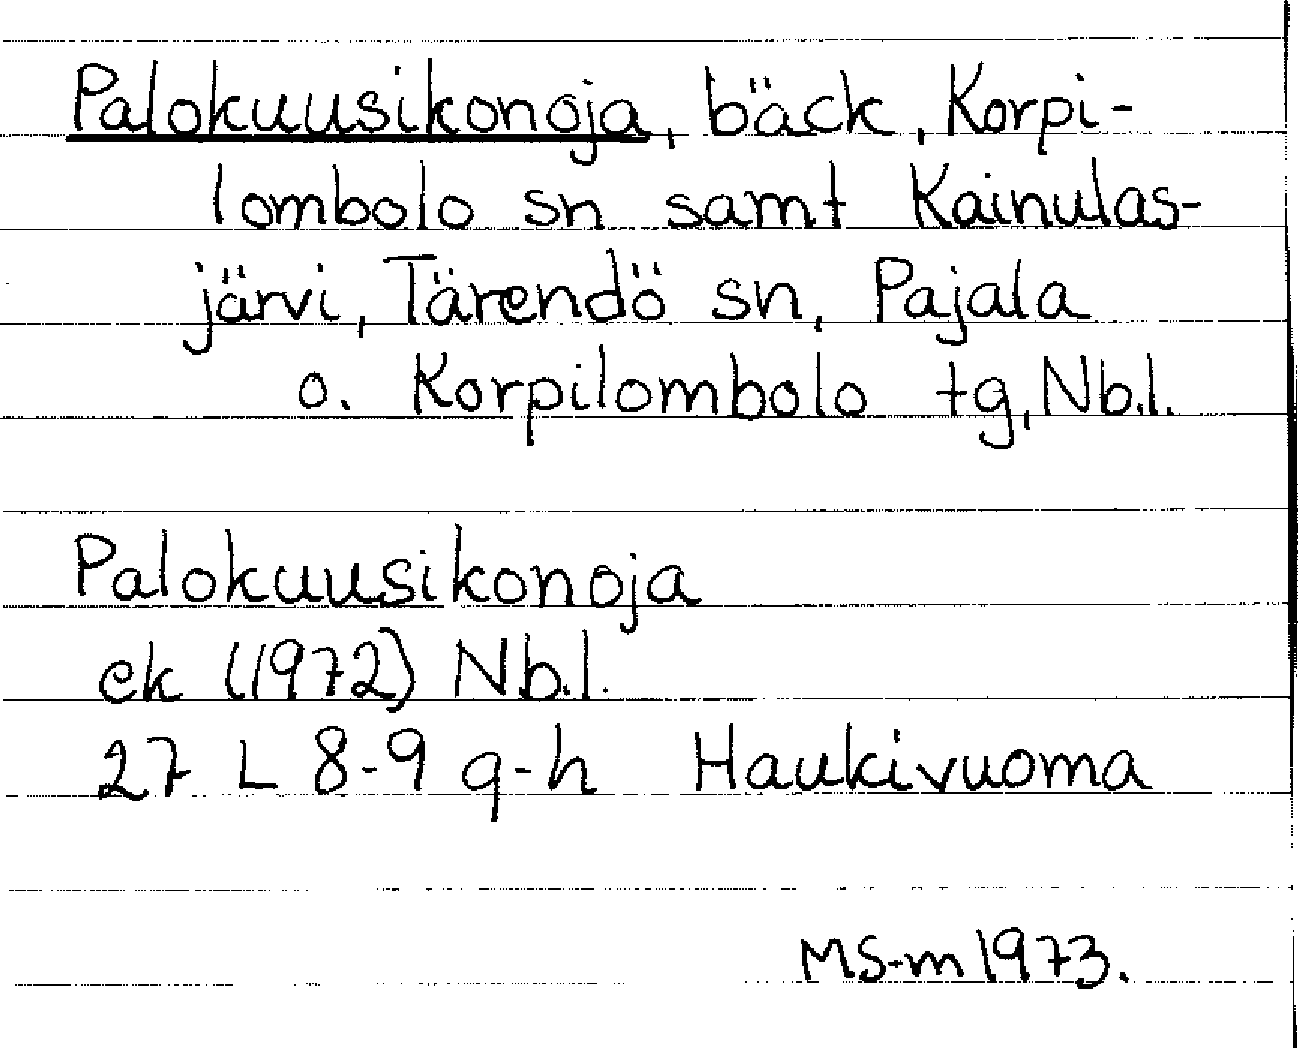 Palokuusikonoja, bäck, Korpi-
lombolo sn samt Kainulas-
järvi, Tärendö sn, Pajala
o. Korpilombolo tg, Nb.l.
Palokuusikonoja
ek (1972) Nb.l.
27 L 8-9 g-h Haukivuoma
MS-m 1973.